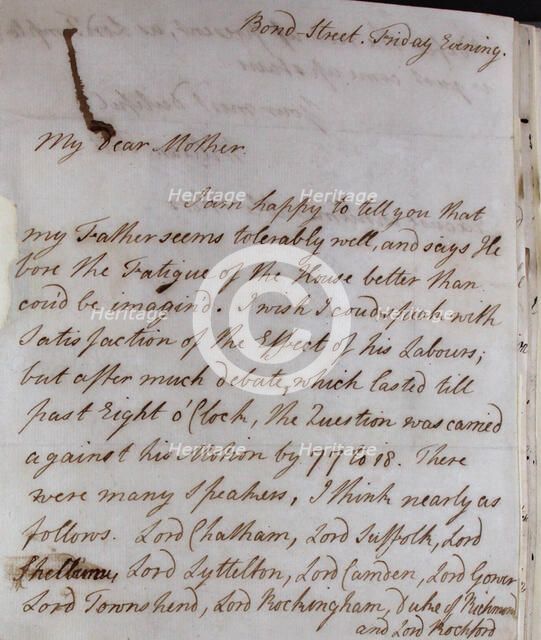 Bond-Street. Friday Evening.
My dear Mother.
I am happy to tell you that
my Father seems tolerably well, and says He
bore the Fatigue of the House better than
cou'd be imagin'd. I wish I coud speak with
Satisfaction of the Effect of his Labours;
but after much debate, which lasted till
past Eight o'Clock, the Question was carried
against his Motion by 77 to 18. There
were many Speakers, I think nearly as
follows. Lord Chatham, Lord Suffolk, Lord
Shelburne, Lord Lyttelton, Lord Camden, Lord Gower
Lord Townshend, Lord Rockingham, Duke of Richmond
and Lord Rochford
Heritage
Heritage
Heritage
Heritage
Heritage
Heritage
Heritage
Heritage